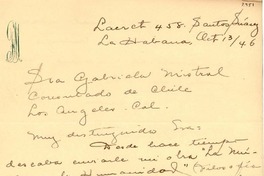 Lacret 458. Santos Suárez
La Habana Oct 13/46
Sra Gabriela Mistral
Consulado de Chile
Los Angeles. Cal.
Muy distinguida Sra:
Desde hace tiempo
deseaba enviarle mi obra La Mú-
Humanidad